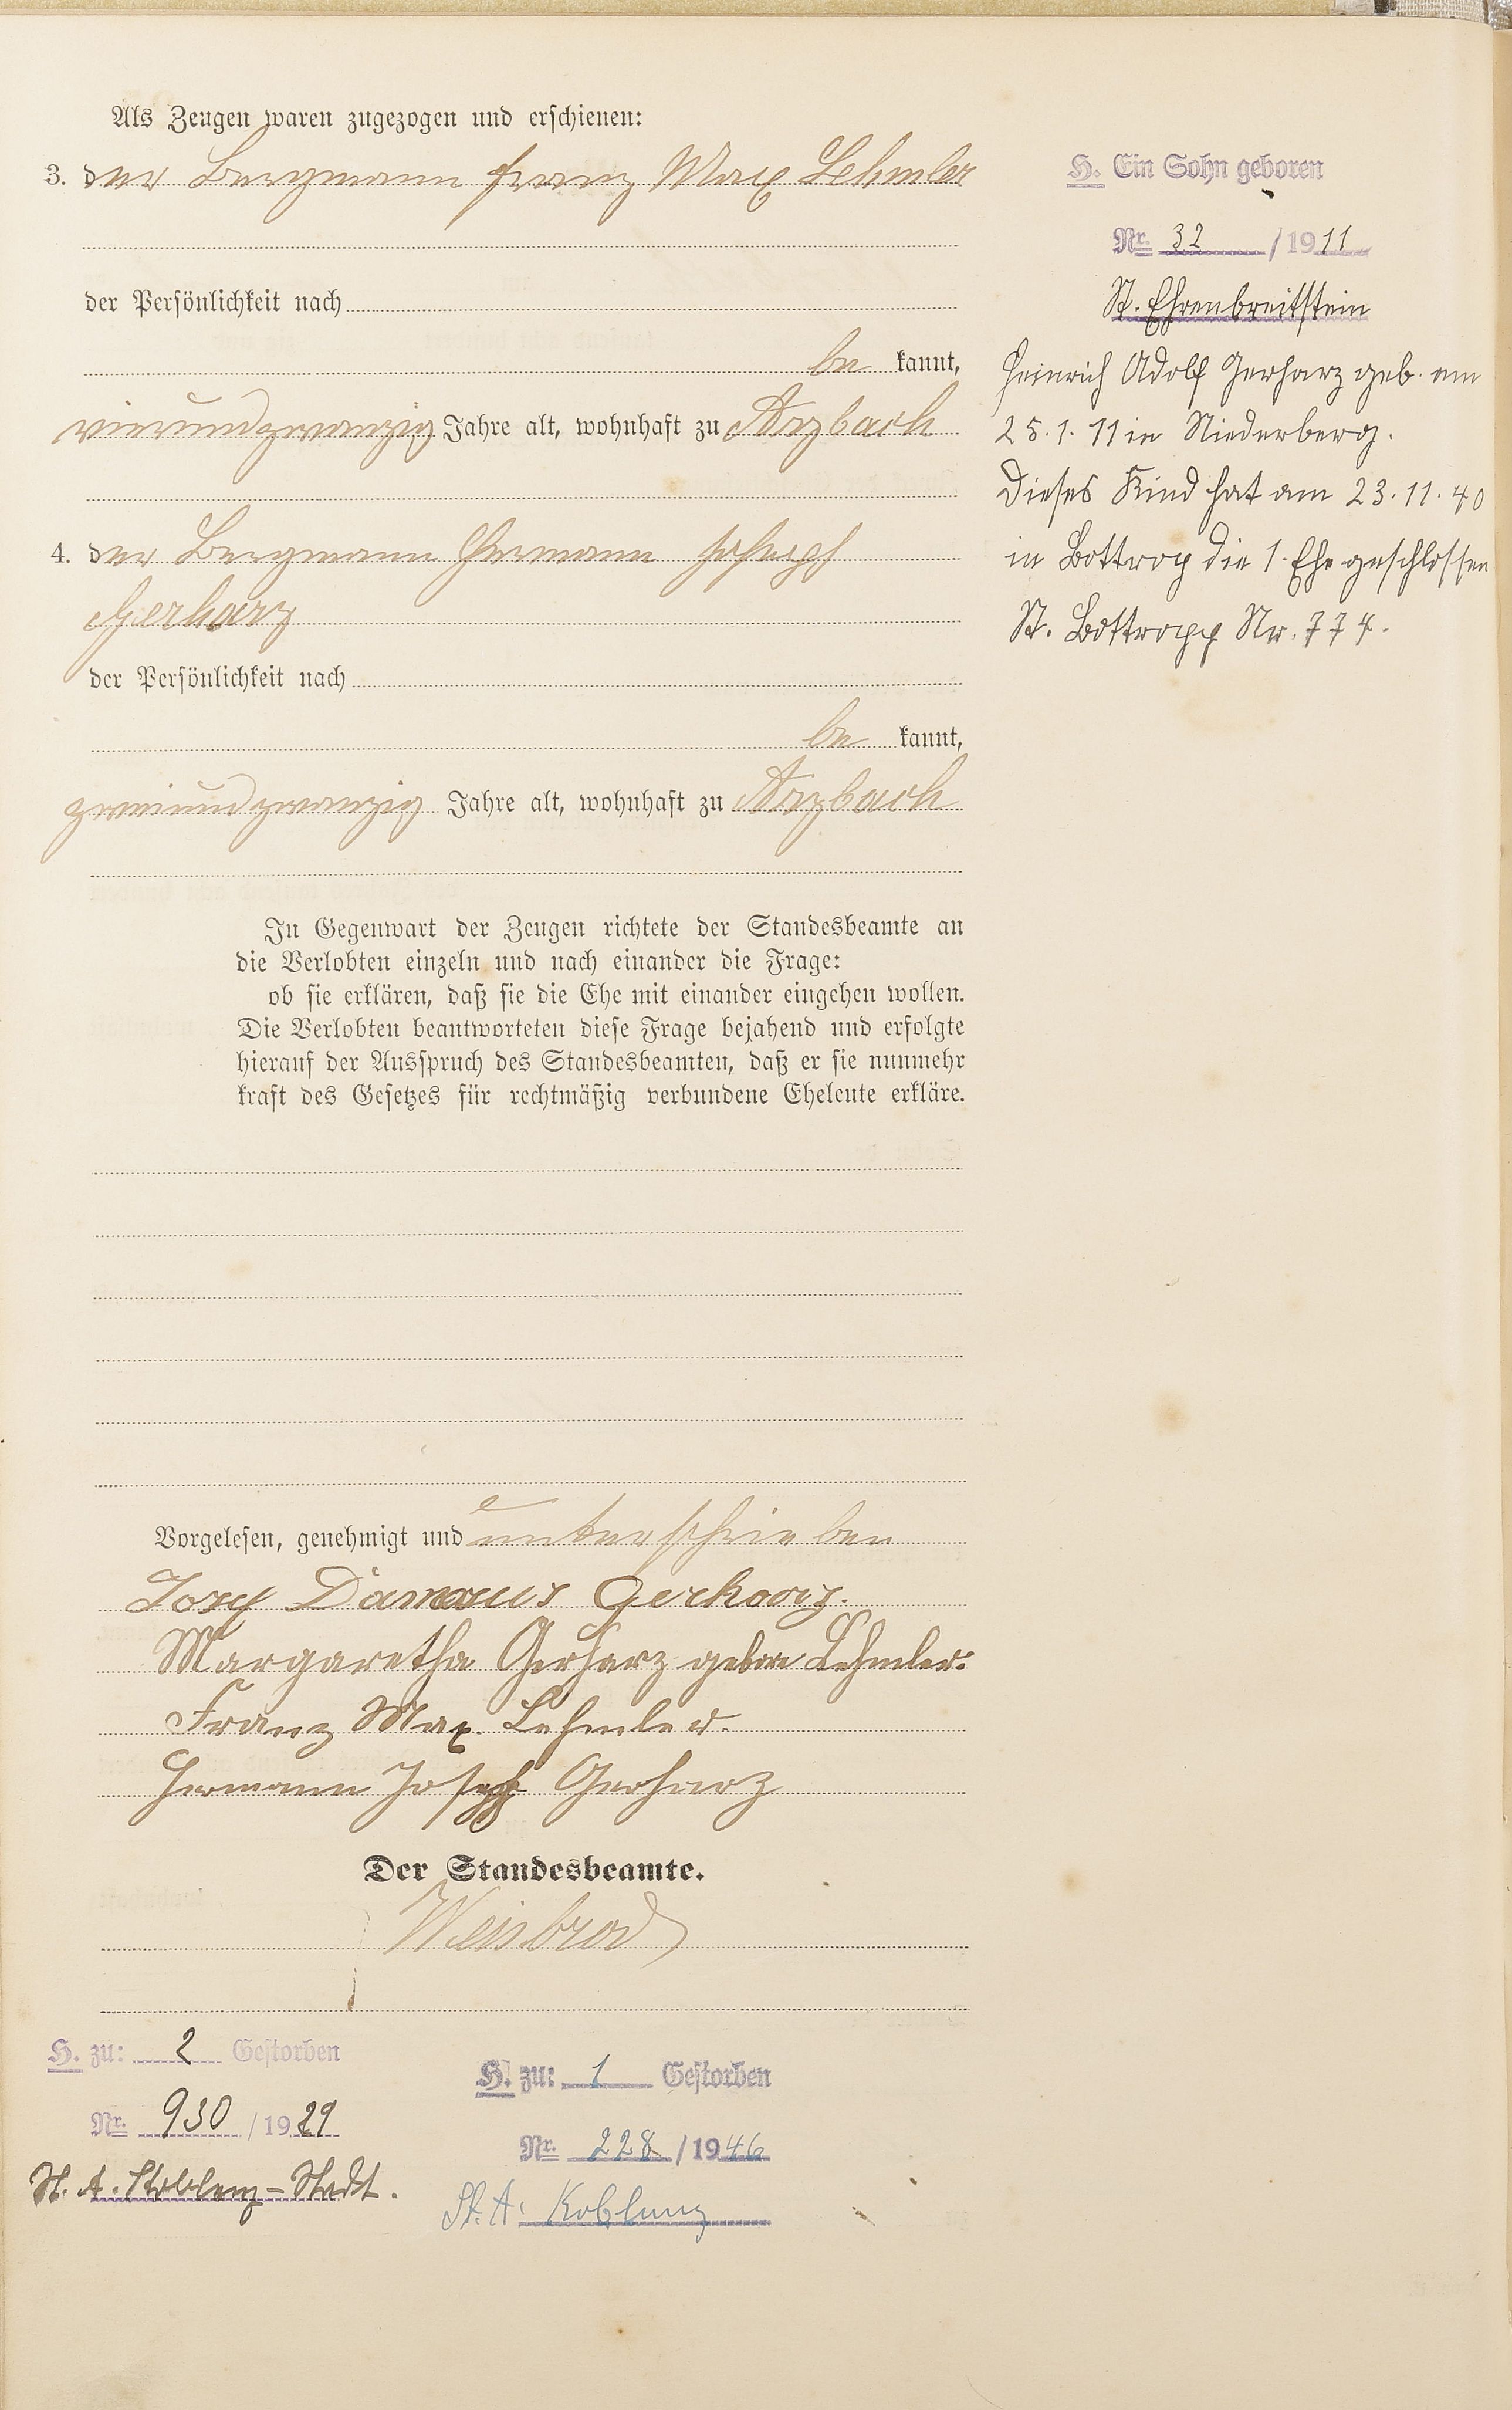 Als Zeugen waren zugezogen und erschienen:
3. der Bergmann Franz Max Lehmler
der Persönlichkeit nach
be kannt,
vierundzwanzig Jahre alt, wohnhaft zu Arzbach
4. der Bergmann Hermann Joseph
Gerharz
der Persönlichkeit nach
be kannt,
zweiundzwanzig Jahre alt, wohnhaft zu Arzbach
In Gegenwart der Zeugen richtete der Standesbeamte an
die Verlobten einzeln und nach einander die Frage:
ob sie erklären, daß sie die Ehe mit einander eingehen wollen.
Die Verlobten beantworteten diese Frage bejahend und erfolgte
hierauf der Ausspruch des Standesbeamten, daß er sie nunmehr
kraft des Gesetzes für rechtmäßig verbundene Eheleute erkläre.
Vorgelesen, genehmigt und unterschrieben
Josef Damasus Gerharz.
Margaretha Gerharz geborne Lehmler.
Franz Max Lehmler.
Hermann Joseph Gerharz
Der Standesbeamte.
Weisbrod
H. zu: 2 Gestorben
Nr. 930 / 1929
St. A. Koblenz-Stadt.
H. zu: 1 Gestorben
Nr. 228 / 1946
St. A. Koblenz
H. Ein Sohn geboren
Nr. 32 / 1911
St. Ehrenbreitstein
Heinrich Adolf Gerharz geb. am
25.1.11 in Niederberg.
Dieses Kind hat am 23.11.40
in Bottrop die 1. Ehe geschlossen
St. Bottrop Nr. 774.